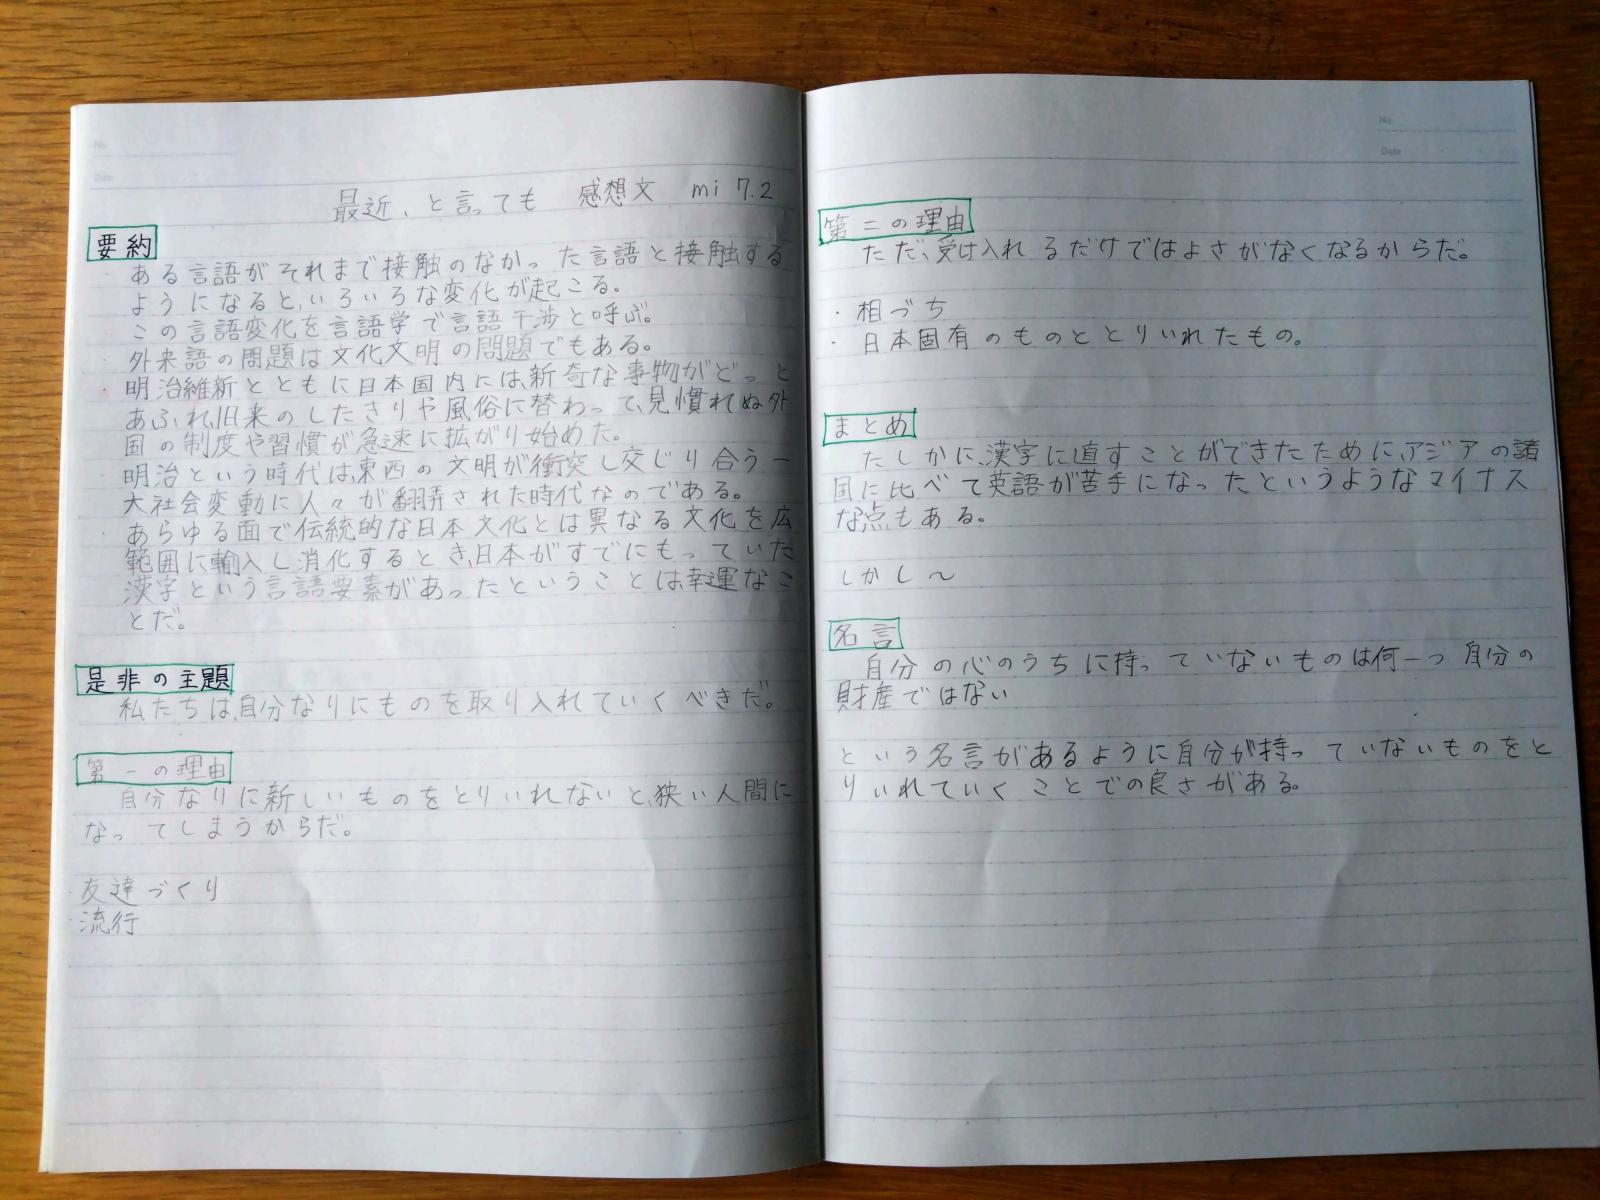 No.
Date
最近、と言っても 感想文 mi 7.2
要約
・ある言語がそれまで接触のなかった言語と接触する
ようになると、いろいろな変化が起こる。
・この言語変化を言語学で言語干渉と呼ぶ。
・外来語の問題は文化文明の問題でもある。
・明治維新とともに日本国内には、新奇な事物がどっと
あふれ、旧来のしたきりや風俗に替わって、見慣れぬ外
国の制度や習慣が急速に拡がり始めた。
・明治という時代は、東西の文明が衝突し交じり合う一
大社会変動に人々が翻弄された時代なのである。
・あらゆる面で伝統的な日本文化とは異なる文化を広
範囲に輸入し消化するとき、日本がすでにもっていた
漢字という言語要素があったということは、幸運なこ
とだ。
是非の主題
私たちは、自分なりにものを取り入れていくべきだ。
第一の理由
自分なりに新しいものをとりいれないと、狭い人間に
なってしまうからだ。
・友達づくり
・流行
No.
Date
第二の理由
ただ、受け入れるだけではよさがなくなるからだ。
・相づち
・日本固有のものととりいれたもの。
まとめ
たしかに、漢字に直すことができたために、アジアの諸
国に比べて英語が苦手になったというようなマイナス
な点もある。
しかし〜
名言
自分の心のうちに持っていないものは何一つ自分の
財産ではない
という名言があるように自分が持っていないものをと
りいれていくことでの良さがある。